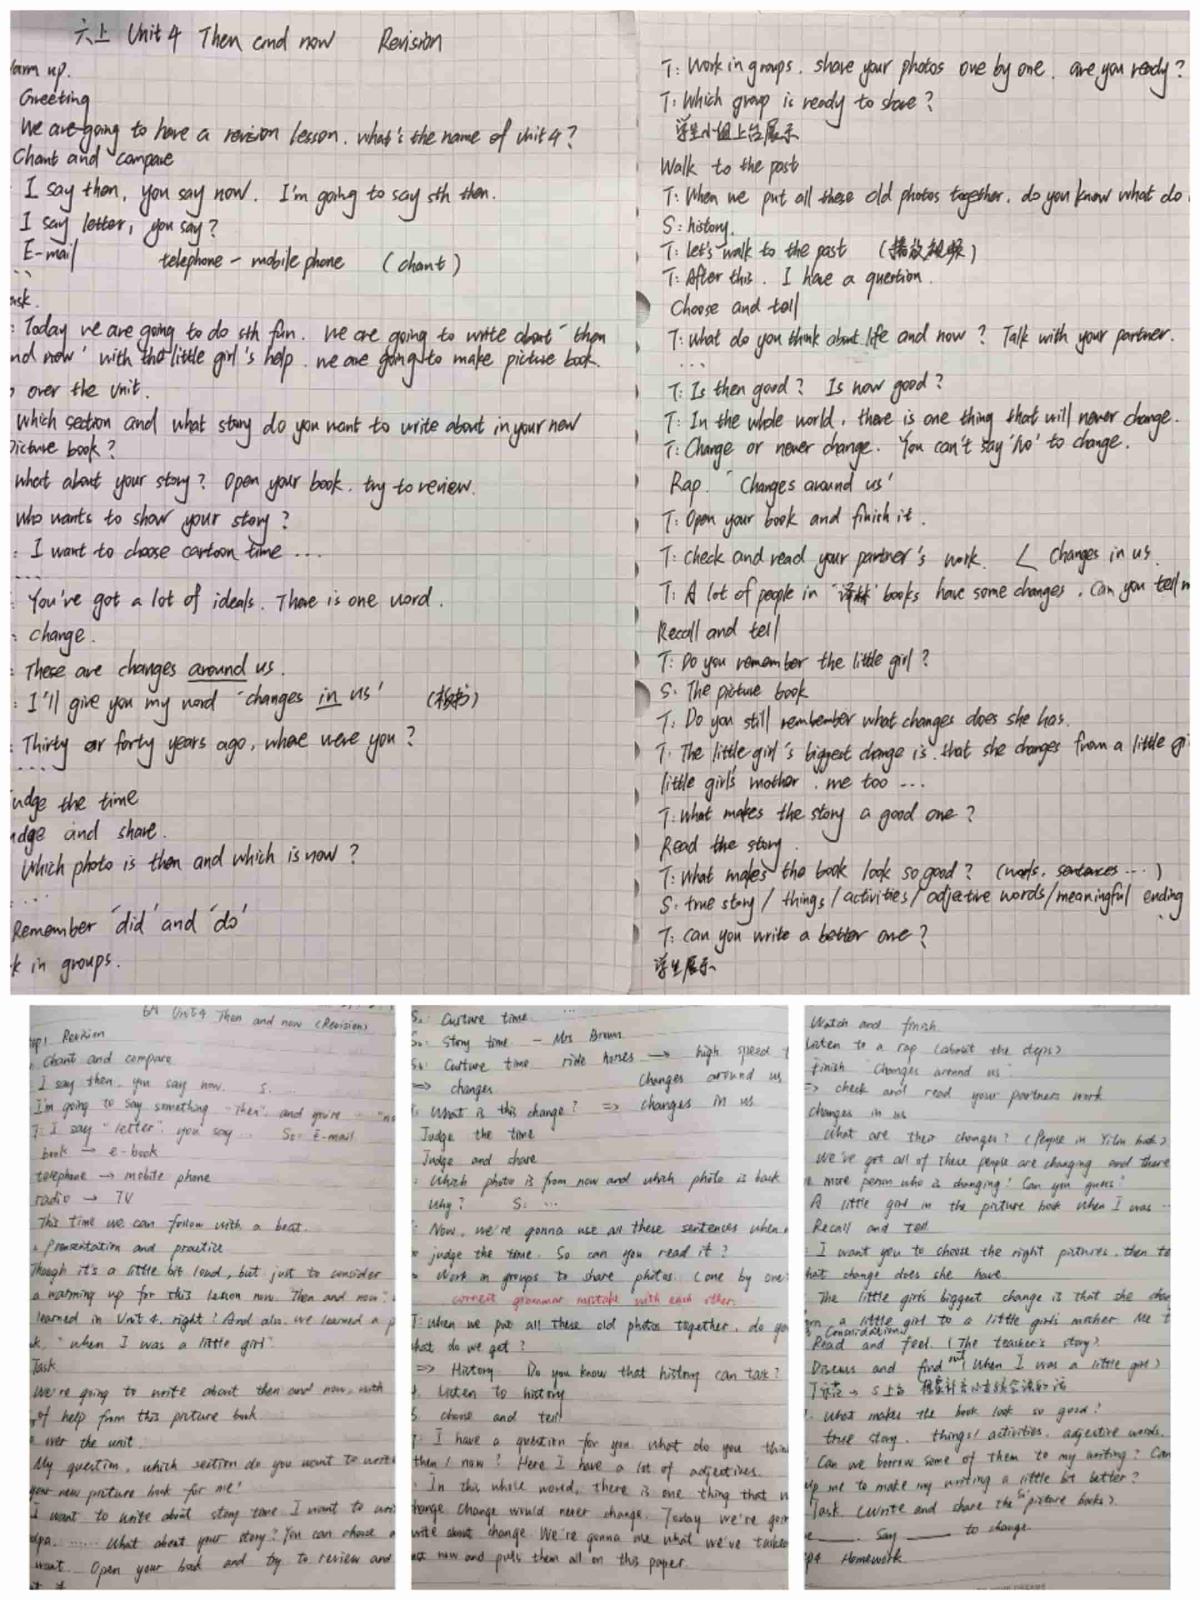 六上 Unit 4 Then and now Revision
arm up.
Greeting
We are going to have a revision lesson. what's the name of Unit 4?
Chant and compare
I say then, you say now. I'm going to say sth then.
I say letter, you say?
E-mail telephone - mobile phone (chant)
ask.
: Today we are going to do sth fun. We are going to write about "then
nd now" with the little girl's help. we are going to make picture book.
o over the unit.
Which section and what story do you want to write about in your new
Picture book?
what about your story? Open your book. try to review.
who wants to show your story?
: I want to choose cartoon time ...
....
: You've got a lot of ideals. There is one word.
: change.
: These are changes around us.
: I'll give you my word "changes in us" (板书)
: Thirty or forty years ago, where were you?
....
udge the time
udge and share.
Which photo is then and which is now?
....
Remember 'did' and 'do'
k in groups.
T: Work in groups. share your photos one by one. are you ready?
T: Which group is ready to share?
学生小组上台展示
Walk to the past
T: When we put all these old photos together, do you know what do
S: history.
T: let's walk to the past (播放视频)
T: After this. I have a question.
Choose and tell
T: what do you think about life and now? Talk with your partner.
...
T: Is then good? Is now good?
T: In the whole world, there is one thing that will never change.
T: Change or never change. You can't say 'No' to change.
Rap. "Changes around us"
T: Open your book and finish it.
T: check and read your partner's work. < Changes in us
T: A lot of people in "译林" books have some changes. Can you tell m
Recall and tell
T: Do you remember the little girl?
S: The picture book
T: Do you still remember what changes does she has.
T: The little girl's biggest change is that she changes from a little gi
little girl's mother. me too ...
T: What makes the story a good one?
Read the story.
T: What makes the book look so good? (words, sentences ...)
S: true story / things / activities / adjective words / meaningful ending
T: Can you write a better one?
学生展示
6A Unit 4 Then and now (Revision)
ep1 Revision
. Chant and compare
I say then, you say now. S.
I'm going to say something "Then", and you're "n
T: I say "letter". you say ... Ss: E-mail
book → e-book
telephone → mobile phone
radio → TV
This time we can follow with a beat.
. Presentation and practice
Though it's a little bit loud, but just to consider
a warming up for this lesson now. Then and now".
learned in Unit 4, right? And also, we learned a p
k, "when I was a little girl".
Task
We're going to write about then and now, with
of help from this picture book.
over the unit.
My question, which section do you want to write
your new picture book for me?
I want to write about story time. I want to wri
dpa. ...... What about your story? You can choose a
want. Open your book and try to review and
S2: Curture time. ...
S3: Story time - Mrs Brown
S4: Curture time. ride horses → high speed t
⇒ changes changes around us
: What is this change? ⇒ changes in us
Judge the time
Judge and share
: Which photo is from now and which photo is back
Why? S: ...
: Now, we're gonna use all these sentences when
judge the time. So can you read it?
Work in groups to share photos (one by one
correct grammar mistake with each other.
T: when we put all these old photos together, do yo
hat do we get?
⇒ History Do you know that history can talk?
4. Listen to history
5. choose and tell
: I have a question for you. what do you thin
then / now? Here I have a lot of adjectives.
In this whole world, there is one thing that w
hange. Change would never change. Today we're goin
write about change. We're gonna use what we've talked
just now and puts them all on this paper.
Watch and finish
Listen to a rap (about the steps)
finish "Changes around us"
⇒ check and read your partners work
changes in us
What are their changes? (People in Yilin books)
We've got all of these people are changing and there
e more person who is changing! Can you guess?
A little girl in the picture book when I was ..
Recall and Tell
: I want you to choose the right pictures, then te
hat change does she have.
The little girl's biggest change is that she chan
om a little girl to a little girl's mother. Me t
Consolidation
Read and feel (The teacher's story)
Discuss and find out (When I was a little girl)
: What makes the book look so good?
true story. things / activities. adjective words.
: Can we borrow some of them to my writing? Can
lp me to make my writing a little bit better?
Task (Write and share the Ss' picture books)
e ______ say ______ to change.
ep4 Homework